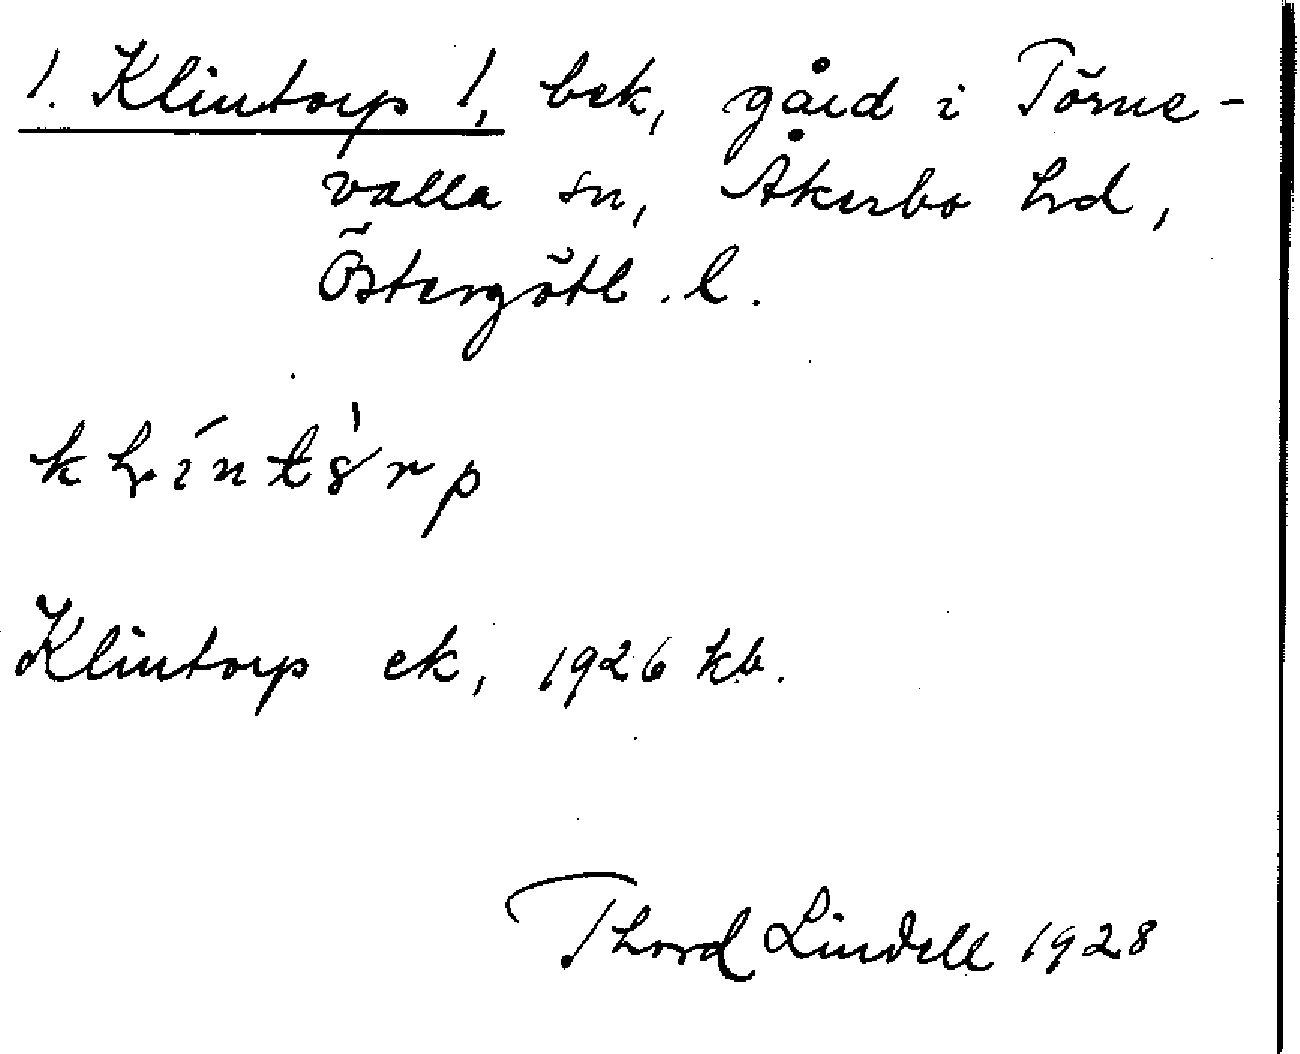 1. Klintorp 1, bek, gård i Törne-
valla sn, Åkerbo hd,
Östergötl. l.
Klintorp ek, 1926 kb.
Thord Lindell 1928